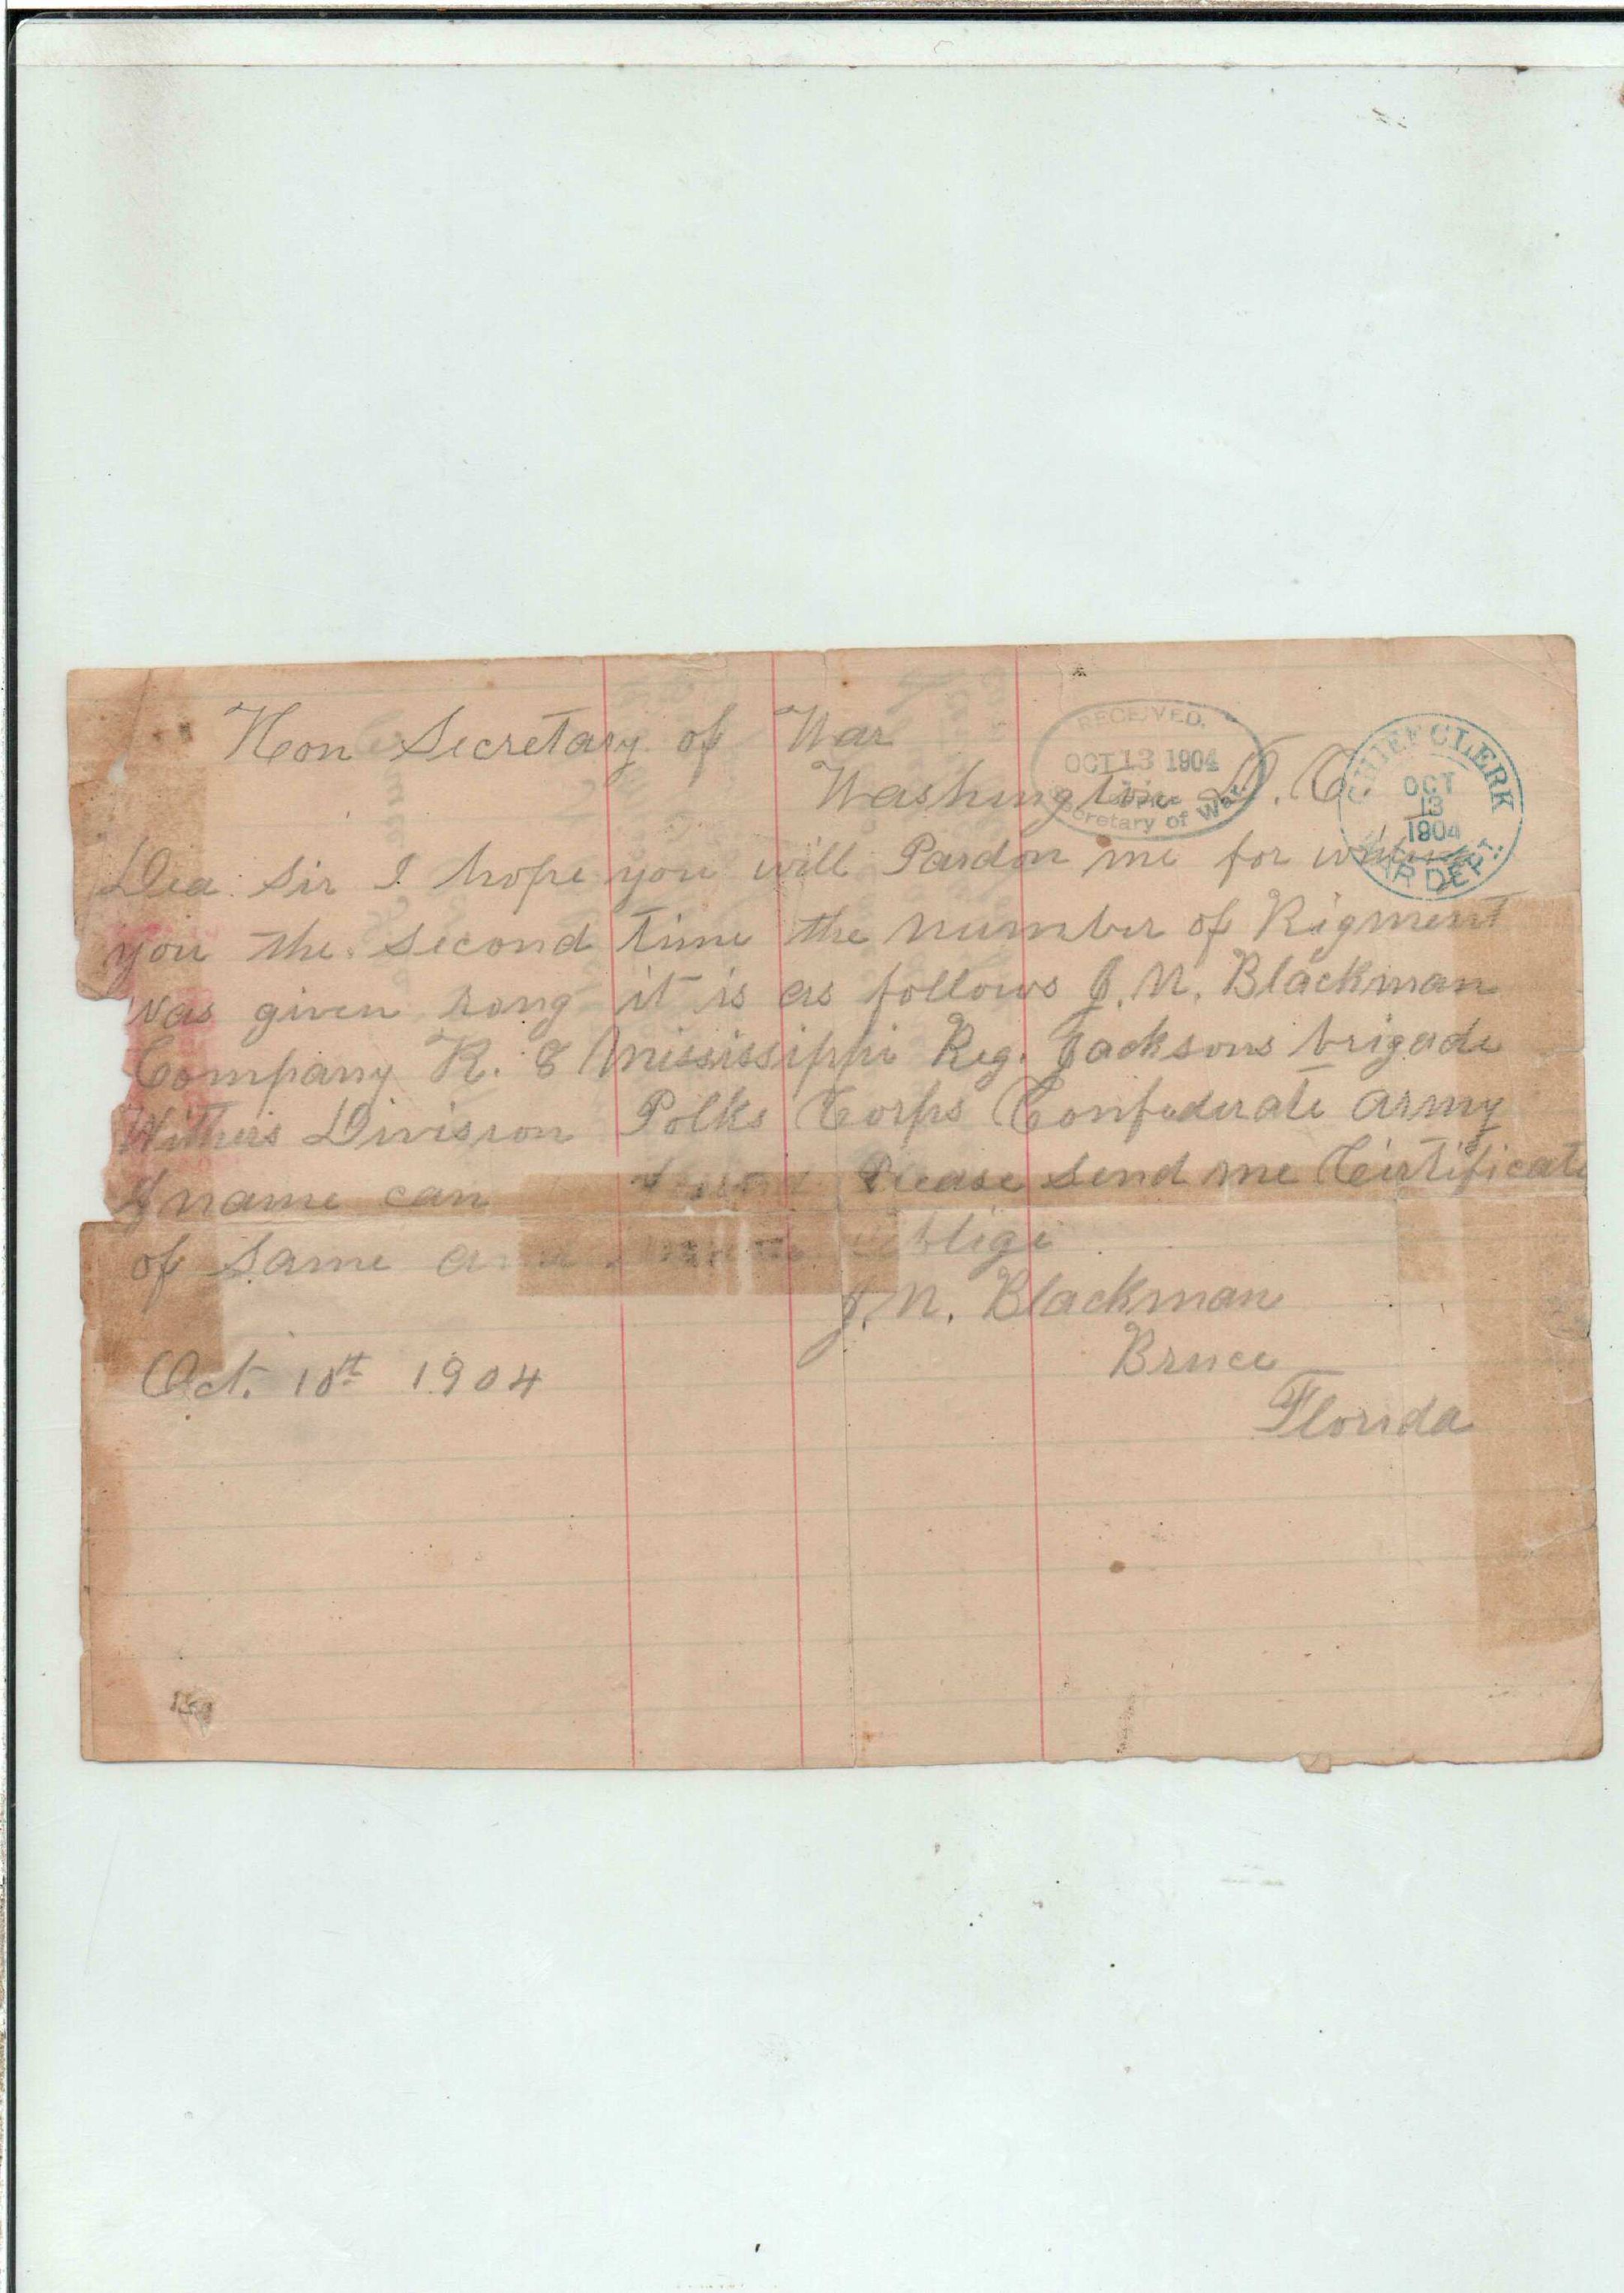 Hon Secretary of War
RECEIVED.
OCT 13 1904
Secretary of War.
Washington D. C.
CHIEF CLERK
OCT
13
1904
WAR DEPT.
Dea Sir I hope you will Pardon me for
you the second time the number of Rigment
was given rong it is as follows J. N. Blackman
Company K. 8 Mississippi Reg. Jacksons brigade
Withers Division Polks Corps Confederate army
name can Please send me Certificate
of Same blige
J. N. Blackman
Bruce
Oct. 10th 1904
Florida